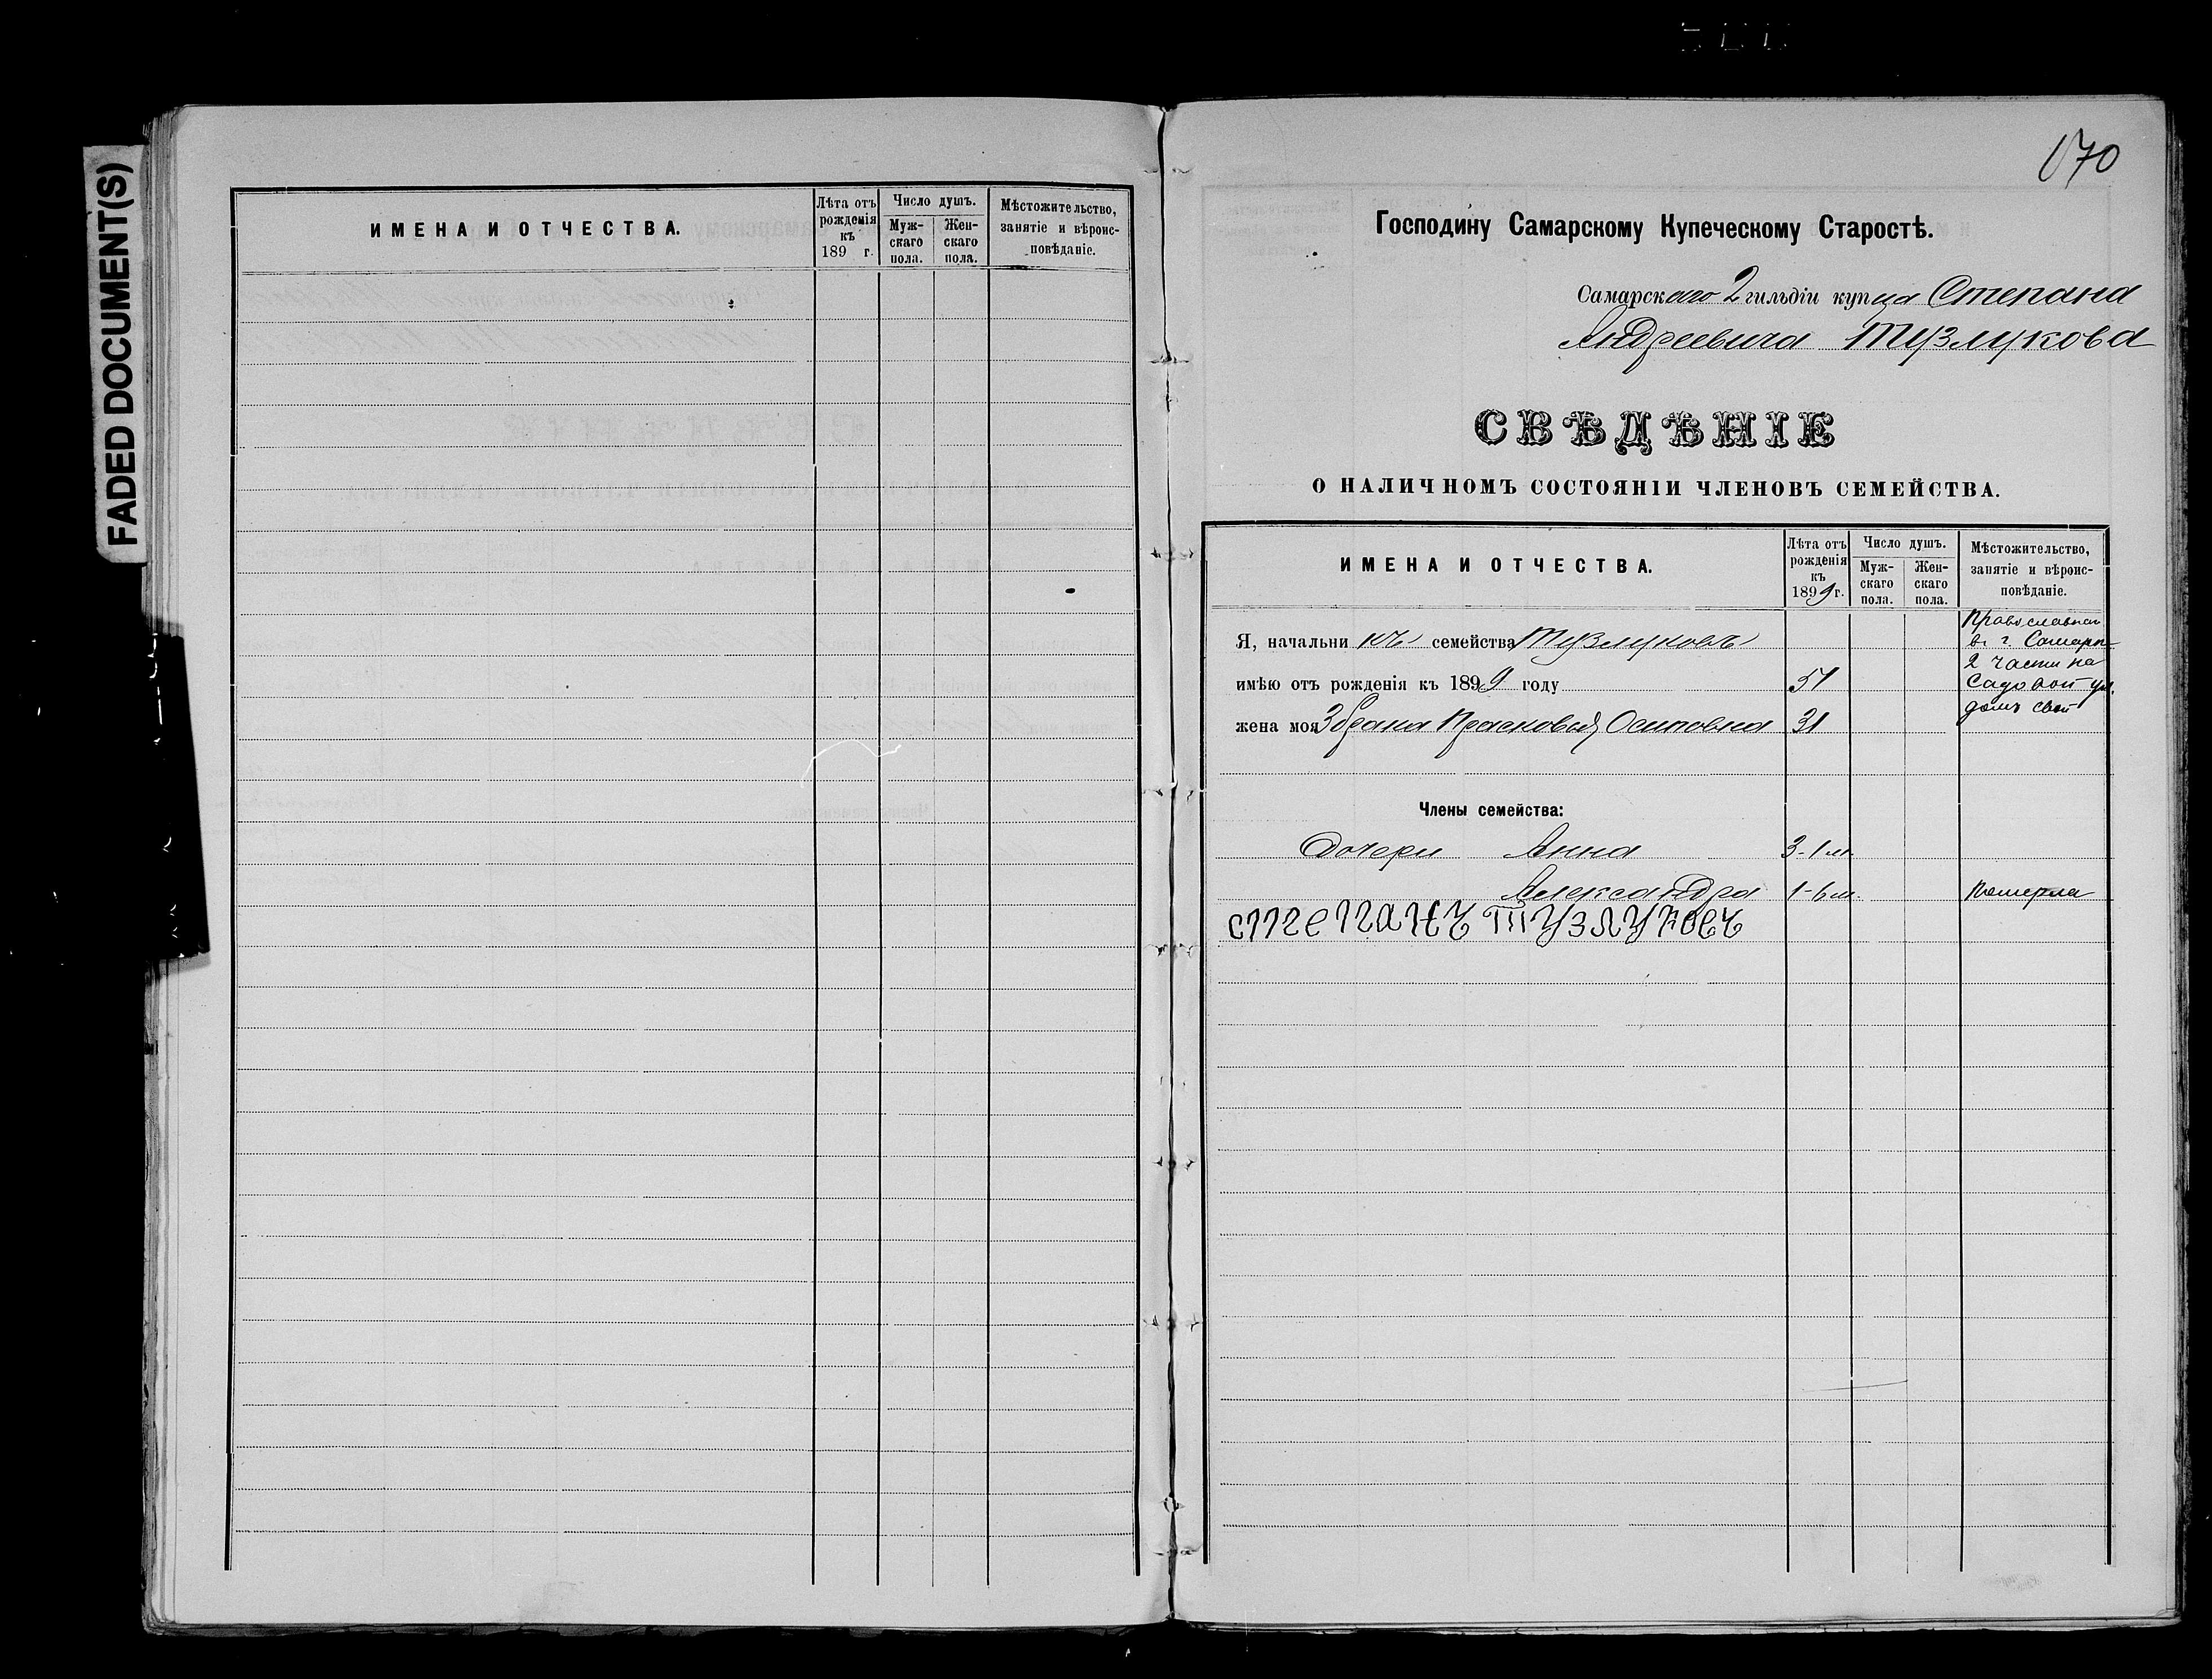 FADED DOCUMENT(S)
ИМЕНА И ОТЧЕСТВА.
Лѣта отъ рожденія къ 189 г.
Число душъ.
Муж-скаго пола.
Жен-скаго пола.
Мѣстожительство, занятіе и вѣроис-повѣданіе.
170
Господину Самарскому Купеческому Старостѣ.
Самарскаго 2 гильдіи купца Степана
Андреевича Тузлукова
СВѢДѢНІЕ
О НАЛИЧНОМЪ СОСТОЯНІИ ЧЛЕНОВЪ СЕМЕЙСТВА.
ИМЕНА И ОТЧЕСТВА.
Лѣта отъ рожденія къ 1899 г.
Число душъ.
Муж-скаго пола.
Жен-скаго пола.
Мѣстожительство, занятіе и вѣроис-повѣданіе.
Я, начальникъ семейства Тузлуковъ
имѣю отъ рожденія къ 1899 году 51
жена моя 3 брака Прасковья Осиповна 31
в. г. Самарѣ
2 части на
Садовой ул.
домъ свой
Члены семейства:
Дочери Анна 3-1 м.
Александра 1-6 м. померла
степанъ тузлуковъ